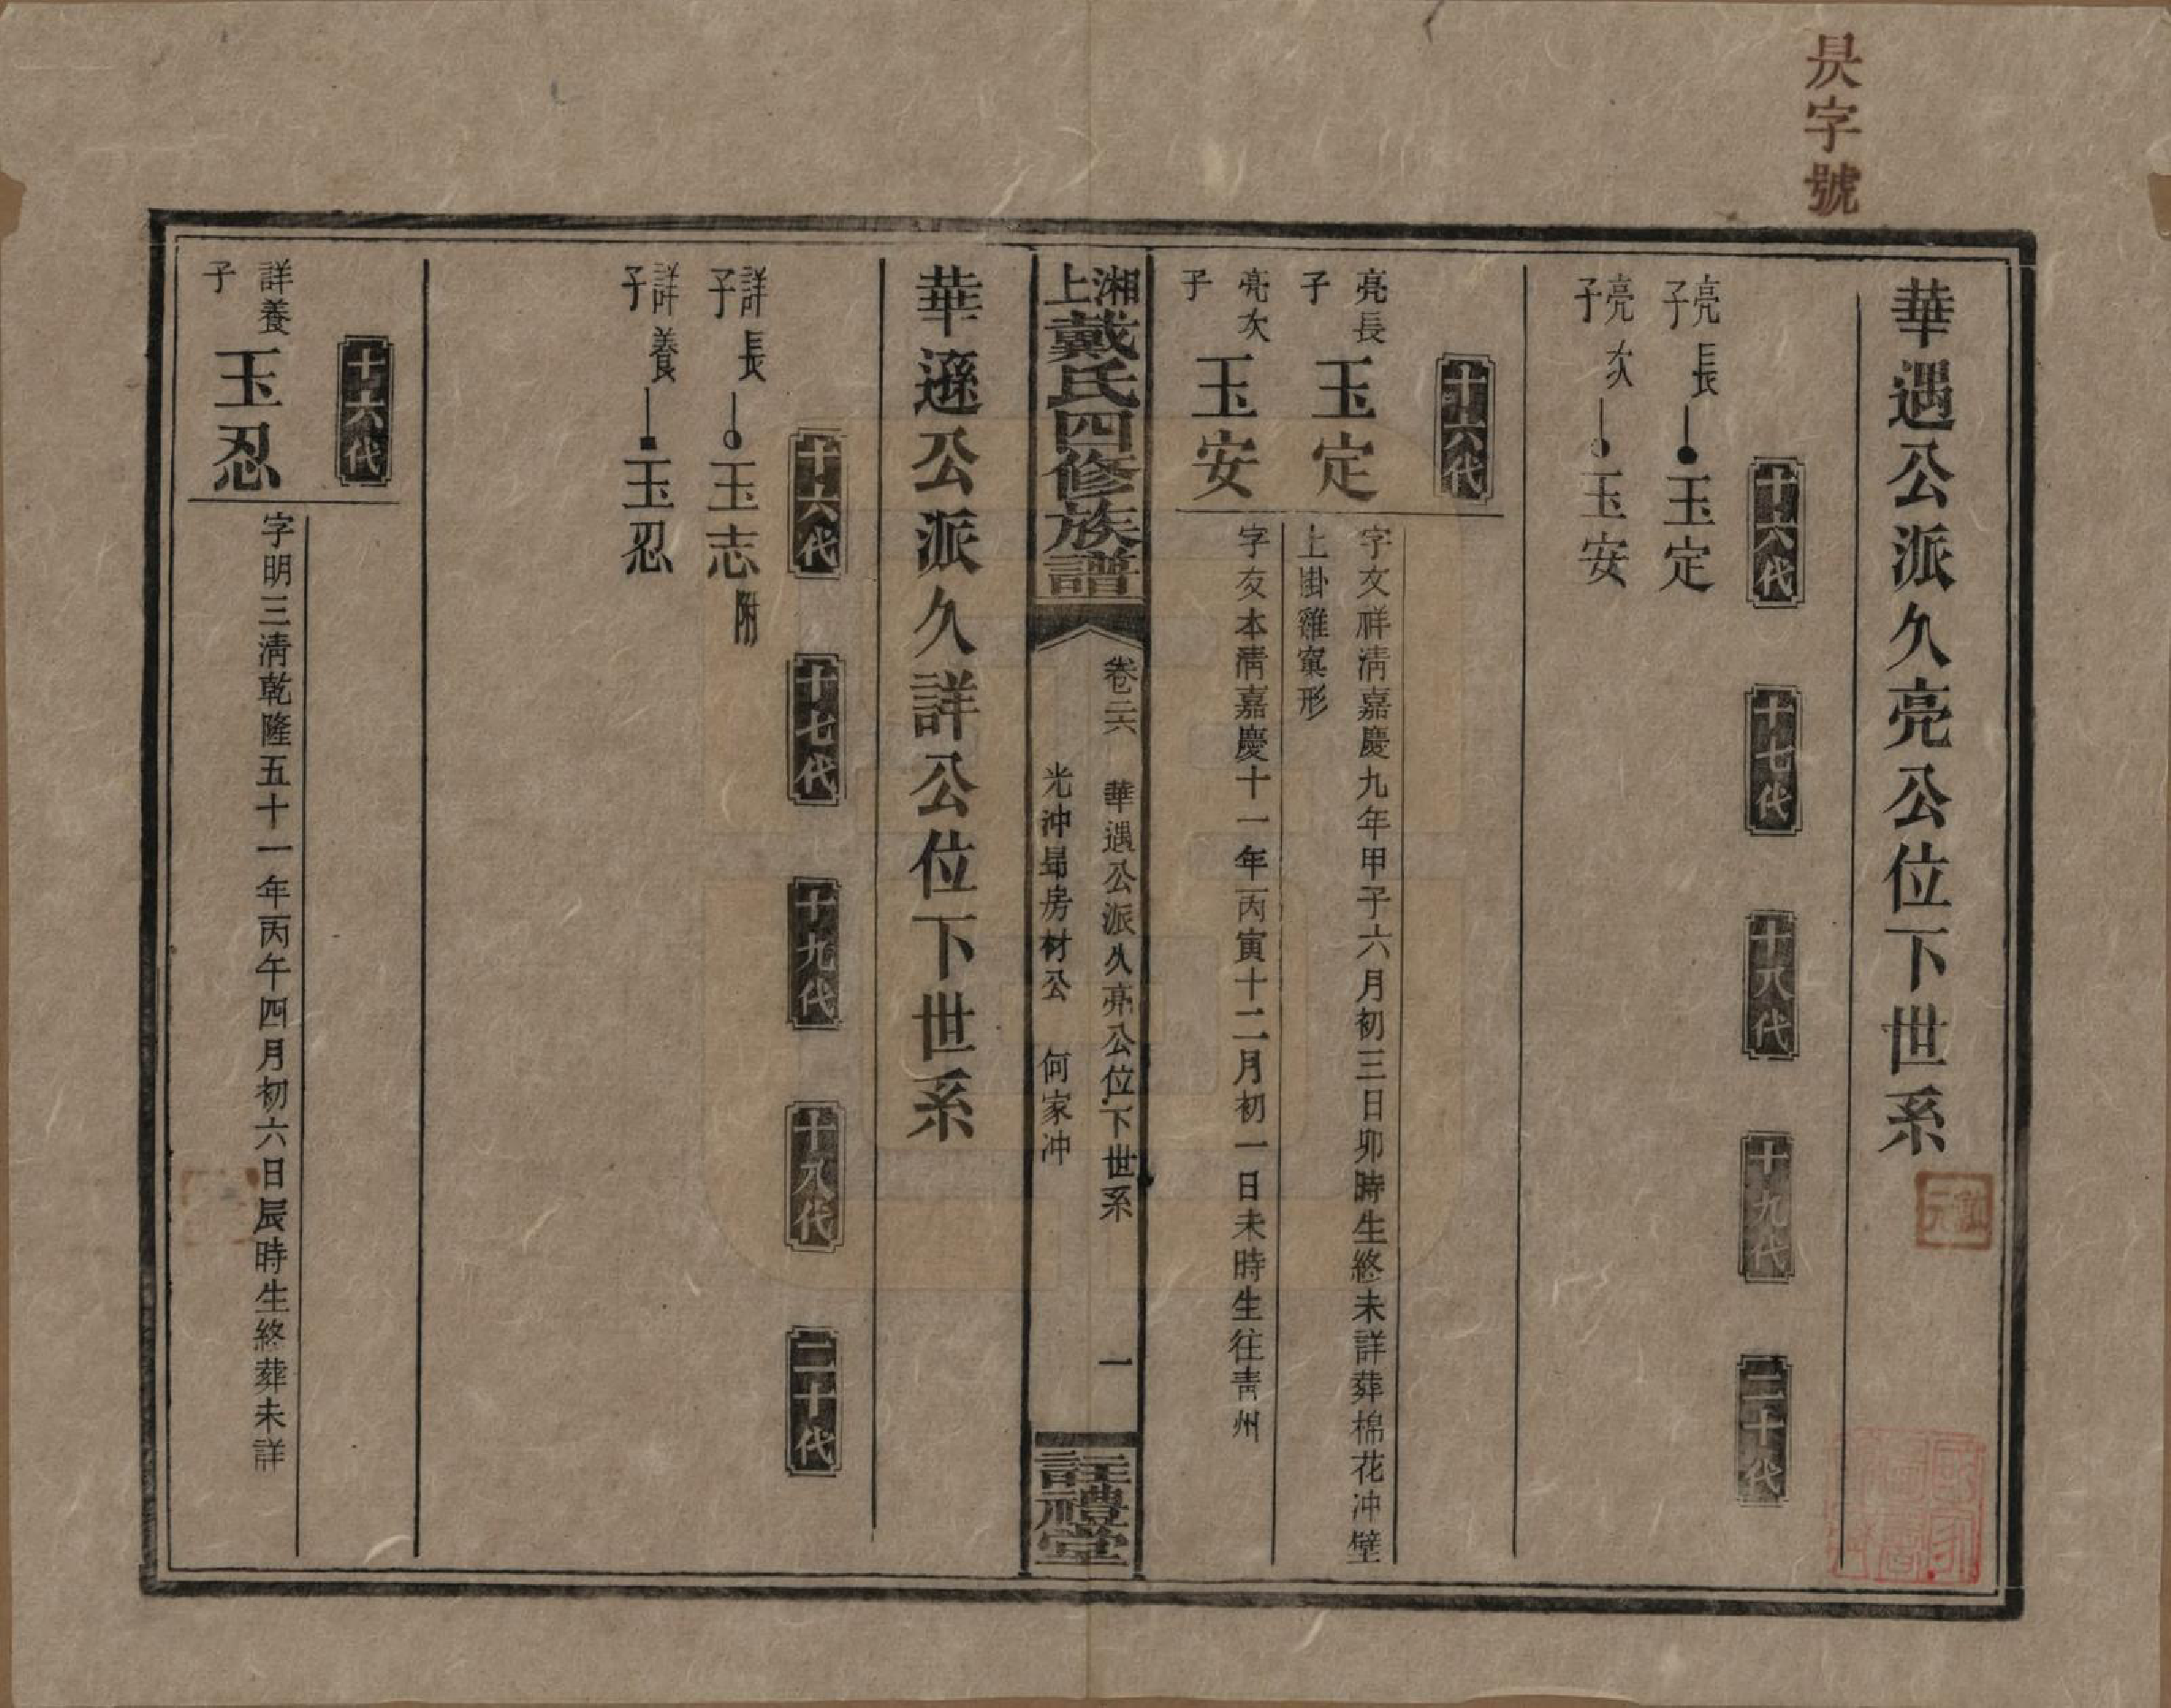 昃字號
華遇公派久亮公位下世系
十六代　十七代　十八代　十九代　二十代
亮長子　玉定
亮次子　玉安
十六代
亮長子　玉定
字文祥淸嘉慶九年甲子六月初三日卯時生終未詳葬棉花冲壁
上掛雞窠形
亮次子　玉安
字友本淸嘉慶十一年丙寅十二月初一日未時生往靑州
湘上戴氏四修族譜
卷三六　華遇公派久亮公位下世系　一
光冲昻房材公　何家冲
註禮堂
華遜公派久詳公位下世系
十六代　十七代　十九代　十八代　二十代
詳長子　玉志　附
詳養子　玉忍
十六代
詳養子　玉忍
字明三淸乾隆五十一年丙午四月初六日辰時生終葬未詳